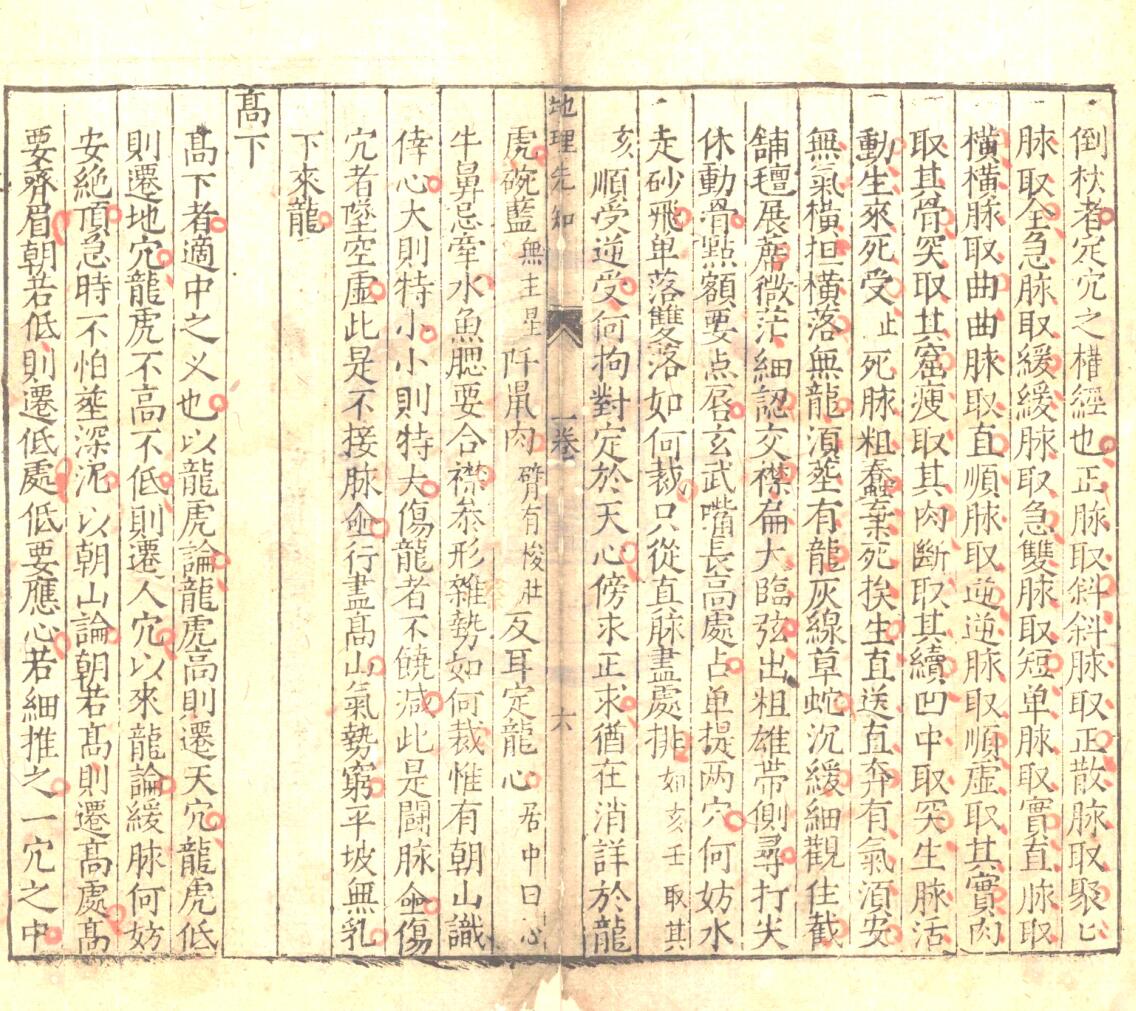 倒杖者定穴之樁經也正脉取斜斜脉取正散脉取聚亡
脉取全急脉取緩緩脉取急雙脉取短单脉取實直脉取
橫橫脉取曲曲脉取直順脉取逆逆脉取順虛取其實肉
取其骨突取其窟瘦取其肉斷取其續凹中取突生脉活
動生來死受止死脉粗蠢棄死挨生直送直奔有氣湏安
無氣橫担橫落無龍湏塟有龍灰線草蛇沉緩細觀住截
舖氊展蓆微茫細認交襟扁大臨弦出粗雄帶側尋打尖
休動滑點額要点唇玄武嘴長高處占单提两穴何妨水
走砂飛单落雙落如何裁只從直脉盡處排如亥壬取其
亥順受逆受何拘對定於天心傍求正求酋在消詳於龍
地理先知 一卷 六
虎碗藍無主星阡鼡肉臂有梭肚反耳定龍心居中曰心
牛鼻忌牽水魚腮要合襟泰形雜勢如何裁惟有朝山識
倖心大則特小小則特大傷龍者不饒减此是鬪脉僉傷
穴者墜空虛此是不接脉僉行盡髙山氣勢窮平坡無乳
下來龍
髙下
髙下者適中之义也以龍虎論龍虎高則遷天穴龍虎低
則遷地穴龍虎不高不低則遷人穴以來龍論緩脉何妨
安絶頂急時不怕塟深泥以朝山論朝若髙則遷髙處髙
要齊眉朝若低則遷低處低要應心若細推之一穴之中